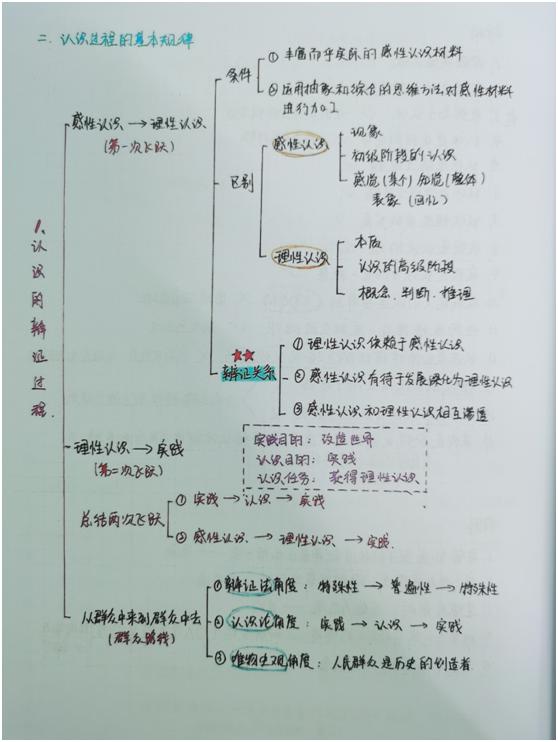 二、认识过程的基本规律
1、认识的辩证过程.
感性认识 → 理性认识
(第一次飞跃)
条件
① 丰富而乎实际的感性认识材料
② 运用抽象和综合的思维方法对感性材料
进行加工
区别
感性认识
现象
初级阶段的认识
感觉(某个)知觉(整体)
表象(回忆)
理性认识
本质
认识的高级阶段
概念、判断、推理
辩证关系
① 理性认识依赖于感性认识
② 感性认识有待于发展深化为理性认识
③ 感性认识和理性认识相互渗透
理性认识 → 实践
(第二次飞跃)
实践目的：改造世界
认识目的：实践
认识任务：获得理性认识
总结两次飞跃
① 实践 → 认识 → 实践
② 感性认识 → 理性认识 → 实践.
从群众中来到群众中去
(群众路线)
① 辩证法角度：特殊性 → 普遍性 → 特殊性
② 认识论角度：实践 → 认识 → 实践
③ 唯物史观角度：人民群众是历史的创造者